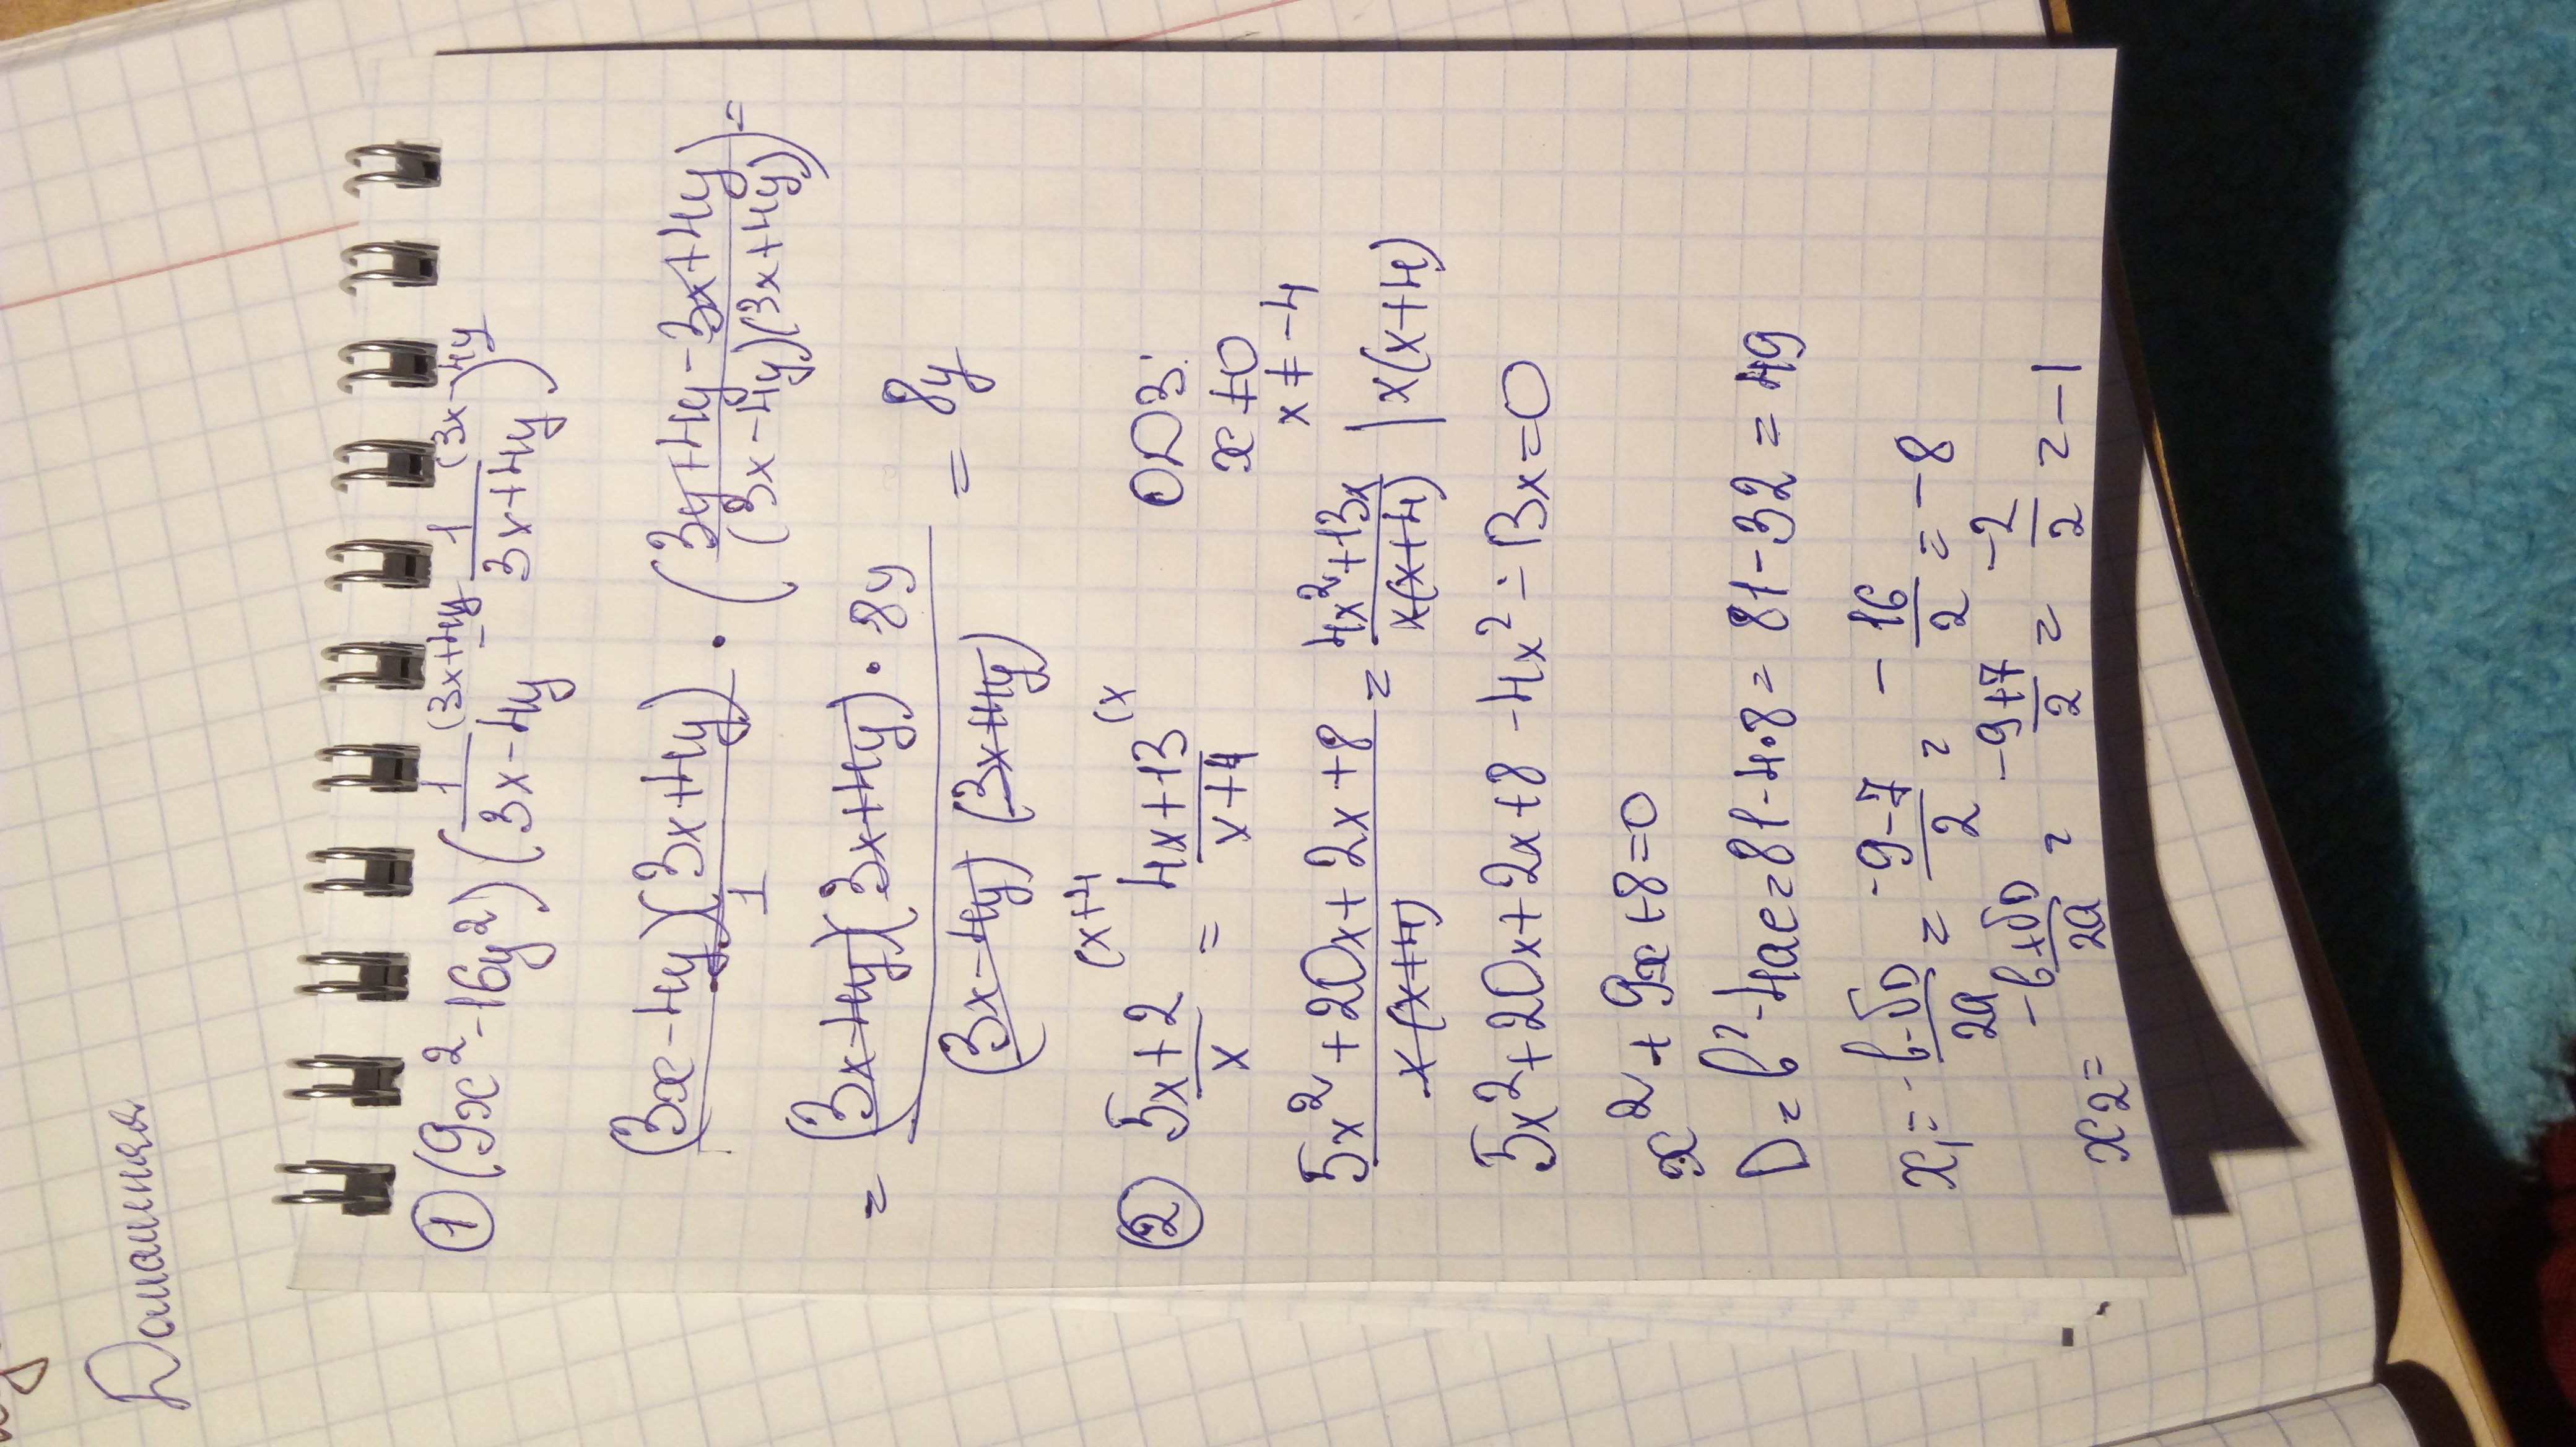 Домашняя
① (9x² - 16y²) ( 1/(3x - 4y) (3x+4y - 1/(3x + 4y) (3x - 4y )
(3x - 4y)(3x + 4y)/1 · (3y + 4y - 3x + 4y)/((3x - 4y)(3x + 4y)) ) =
= (3x - 4y)(3x + 4y) · 8y/((3x - 4y) (3x + 4y)) = 8y
② (5x + 2)/x (x+4 = (4x + 13)/(x + 4) (x ОДЗ:
x ≠ 0
x ≠ -4
(5x² + 20x + 2x + 8)/(x(x+4)) = (4x² + 13x)/(x(x+4)) | x(x+4)
5x² + 20x + 2x + 8 - 4x² - 13x = 0
x² + 9x + 8 = 0
D = b² - 4ac = 81 - 4·8 = 81 - 32 = 49
x₁ = (-b - √D)/2a = (-9 - 7)/2 = - 16/2 = -8
x₂ = (-b + √D)/2a = (-9 + 7)/2 = -2/2 = -1